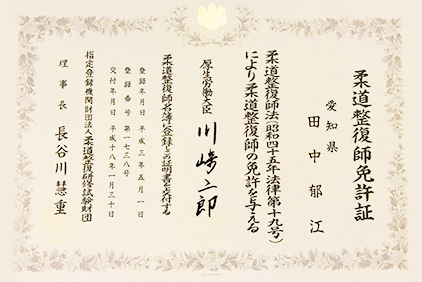 柔道整復師免許証
愛知県
田中郁江
柔道整復師法(昭和四十五年法律第十九号)
により柔道整復師の免許を与える
厚生労働大臣 川崎二郎
柔道整復師名簿に登録しこの証明書を交付する
登録年月日 平成三年五月一日
登録番号 第一七三八号
交付年月日 平成十八年一月三十日
指定登録機関財団法人柔道整復研修試験財団
理事長 長谷川慧重